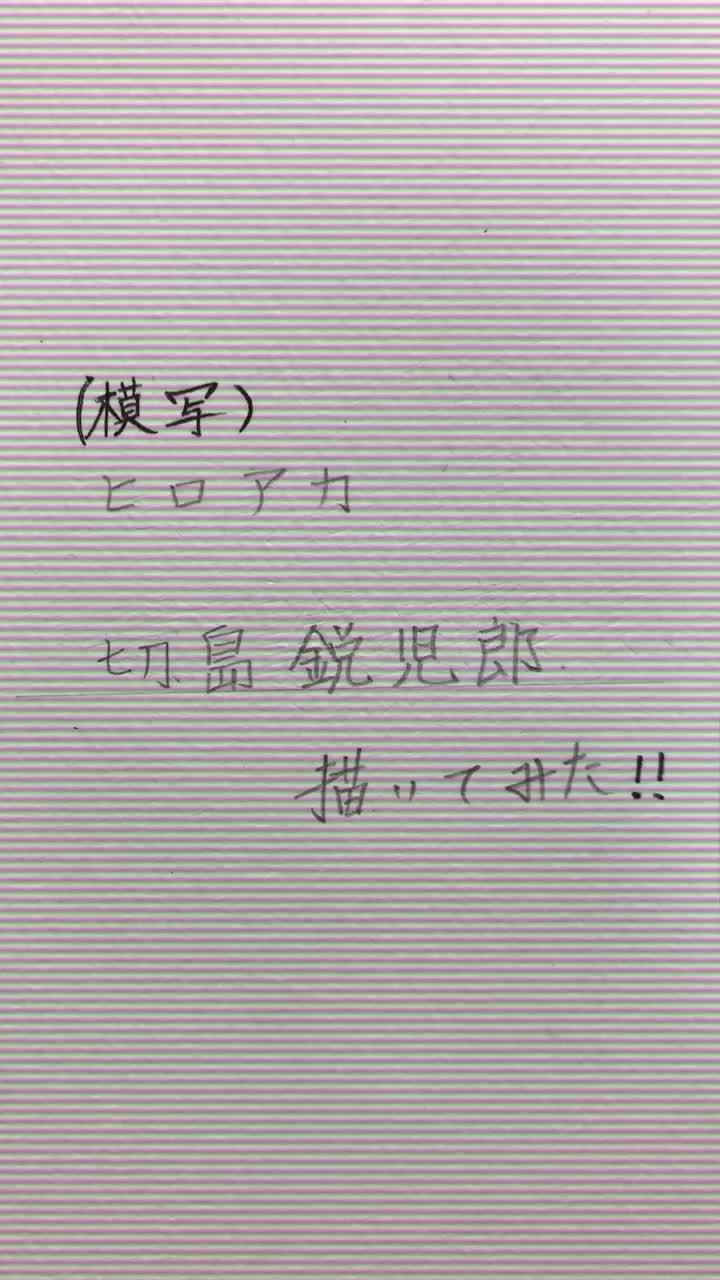 (模写)
ヒロアカ
切島 鋭児郎
描いてみた!!